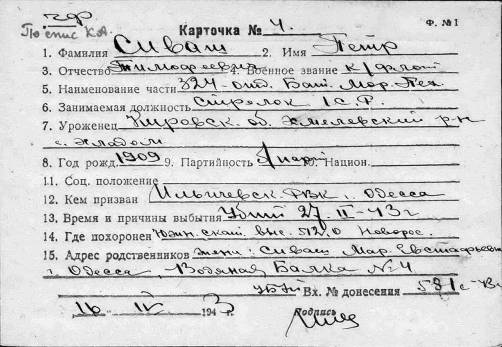 Карточка № 4. Ф. № 1
1. Фамилия Сиваш 2. Имя Петр
3. Отчество Тимофеевич 4. Военное звание к/флот
5. Наименование части 324 отд. Бат. Мор. Пех
6. Занимаемая должность Стрелок 1 с. р.
7. Уроженец Кировск. об. Хмелевский р-н
8. Год рожд. 1909 9. Партийность б/парт 10. Национ.
11. Соц. положение
12. Кем призван Ильичевск РВК г. Одесса
13. Время и причины выбытия Убит 27. II-43 г
14. Где похоронен выс. 512,0 Новорос.
15. Адрес родственников жена: Сиваш Мар. Евстафьевна
г. Одесса, Водяная Балка № 4
убит Вх. № донесения 531с-43
16 1943 г. Подпись